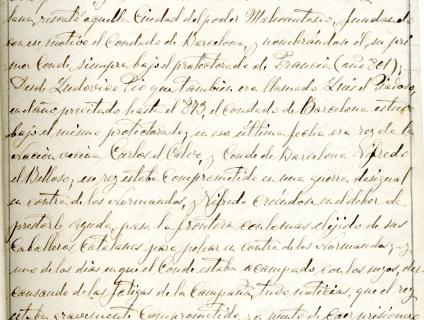 rescató aquella Ciudad del poder Mahometano, fundando
con en motivo el Condado de Barcelona, y nombrándose él, su pri
mer Conde, siempre bajo el protectorado de Francia (año 801).
Desde Ludovico Pio que tambien era llamado Luis el Piadoso,
en el año precitado hasta el 873, el condado de Barcelona estuvo
bajo el mismo protectorado, y en esa última fecha era rey de la
nacion vecina Carlos el Calvo, y Conde de Barcelona Vifredo
el Belloso, en rey estaba comprometido en una guerra desigual
en contra de los normandos, y Vifredo creyendo en el deber de
prestarle ayuda, pasa la frontera con lo mas elejido de sus
caballeros Catalanes para pelear en contra de los normandos; y
uno de los dias en que el Conde estaba acampado, con los suyos, des
cansando de las fatigas de la Campaña, tuvo noticias, que el rey
estaba gravemente comprometido y a punto de caer prisionero